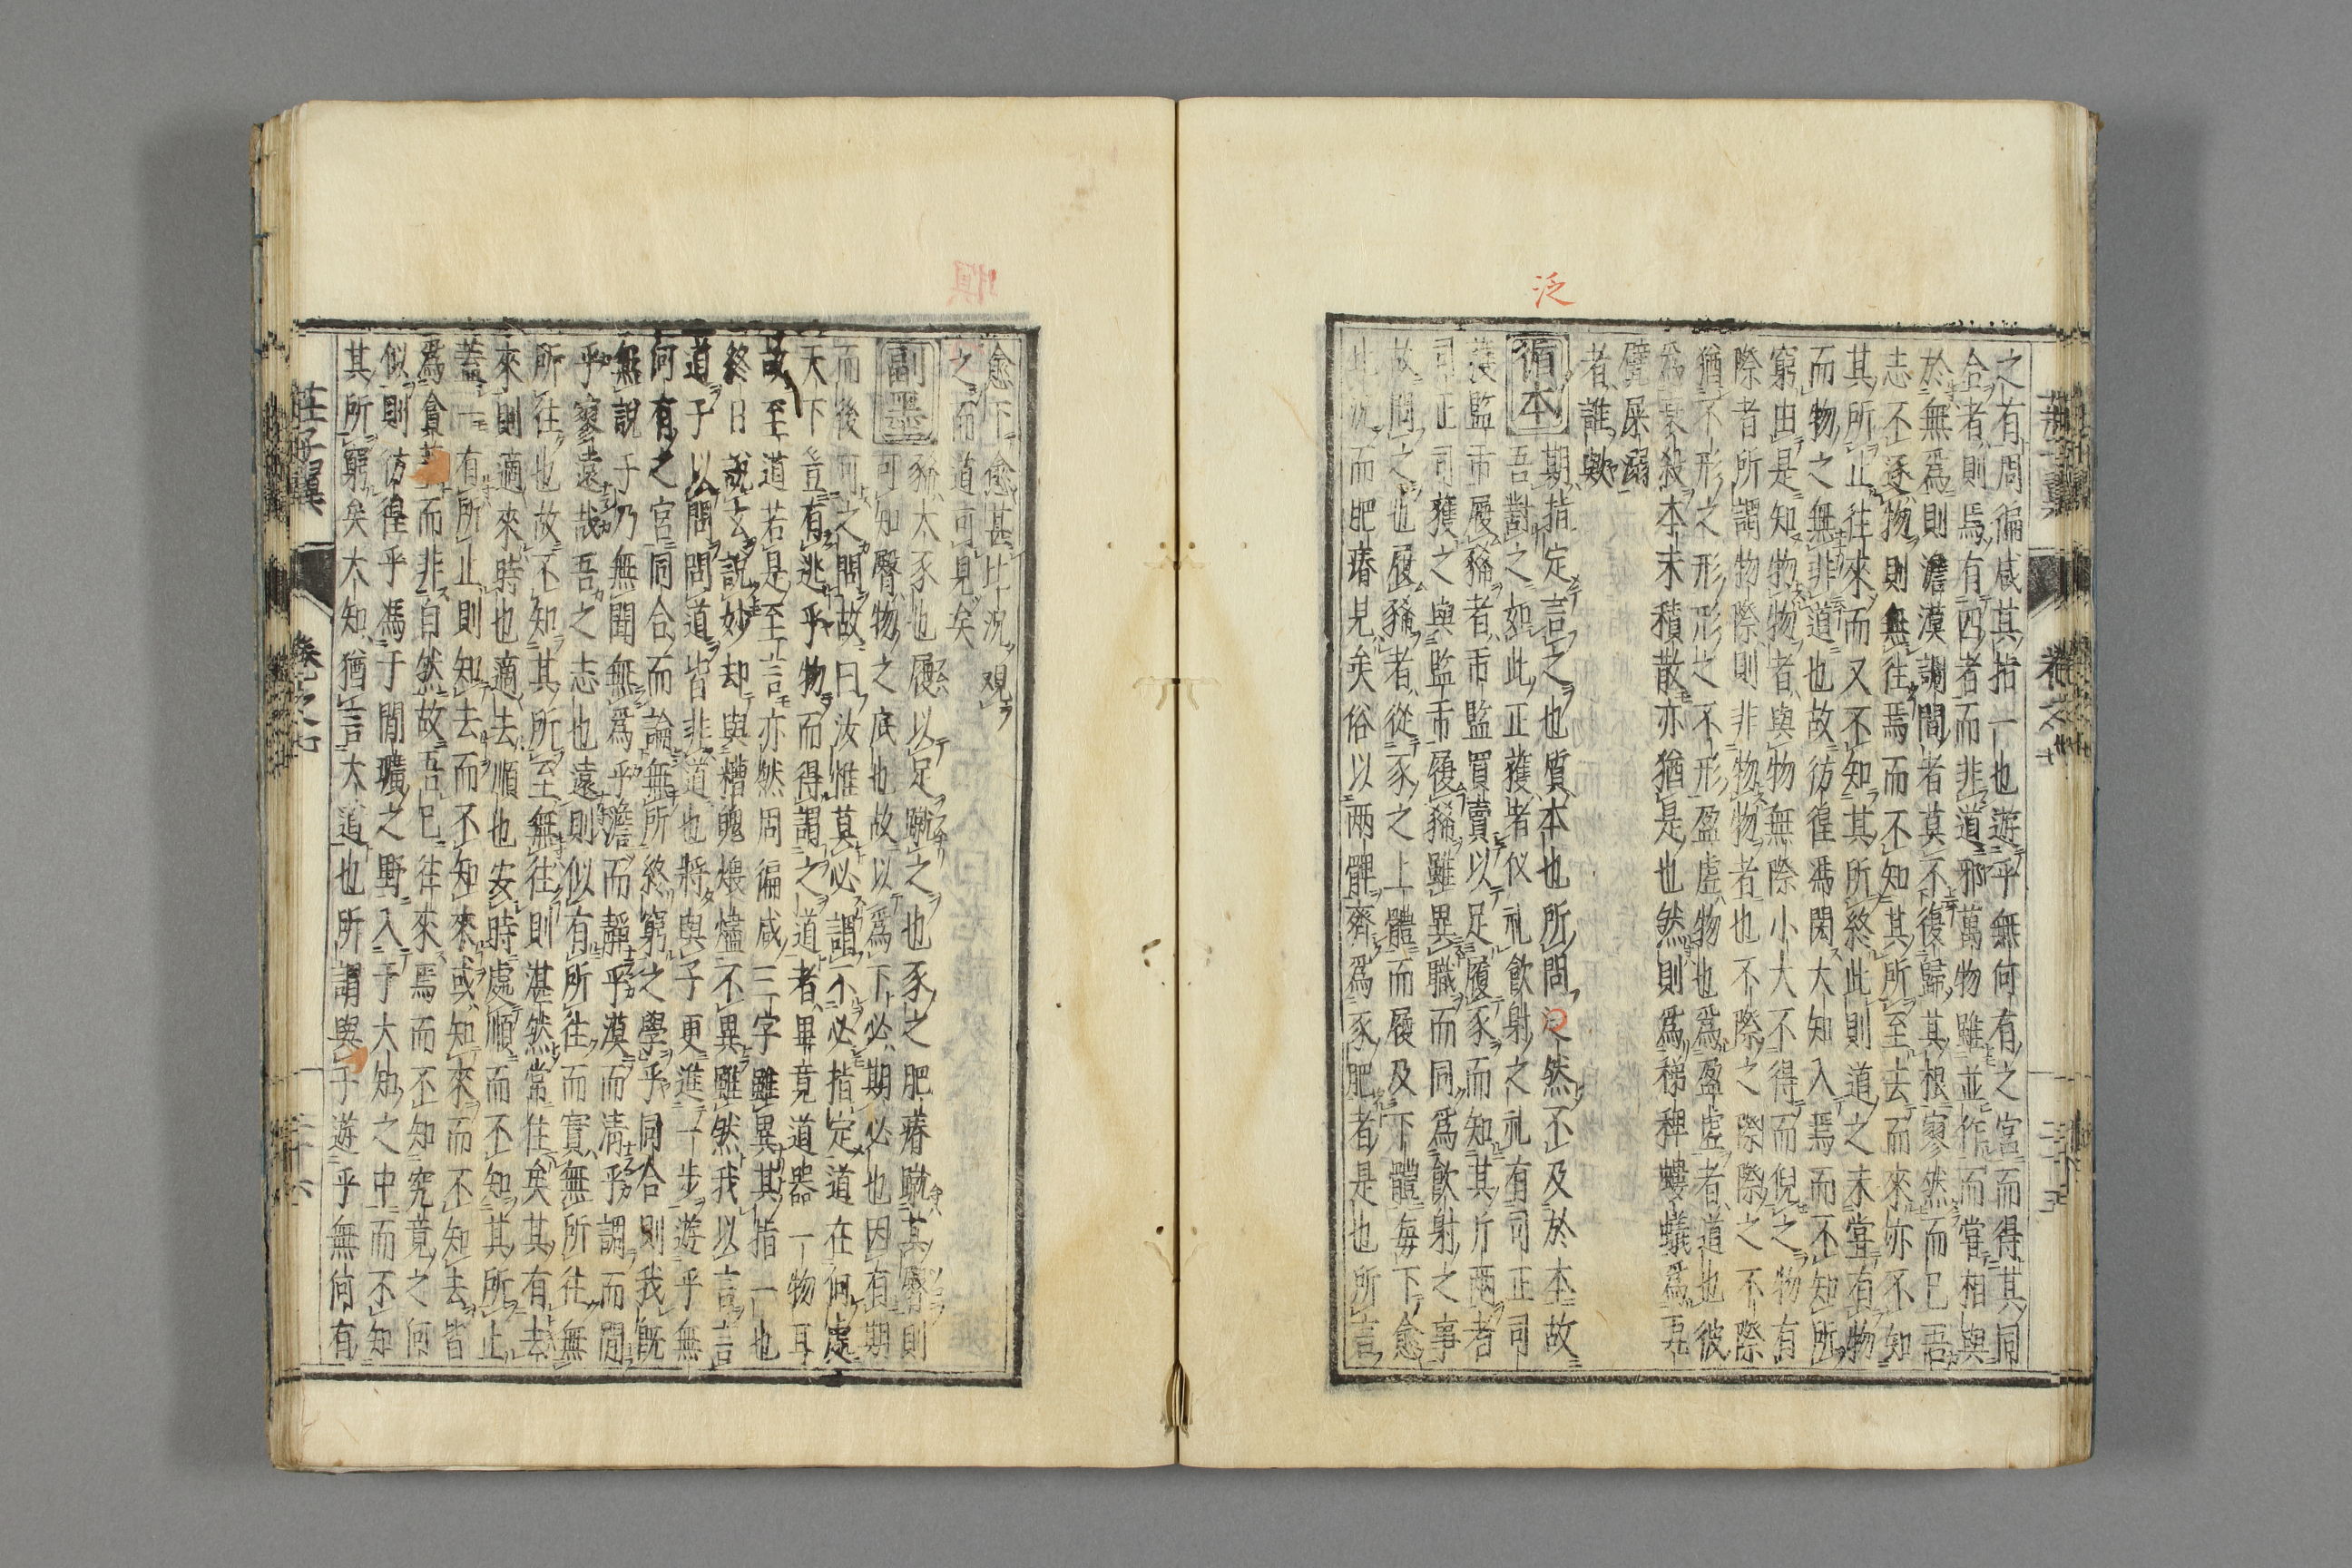 泛
之有周徧咸其指一也遊乎無何有之宮而得其同
合者則焉有四者而非道邪萬物雖並作而當相與
於無爲則澹漠調閒者莫不復歸其根寥然而已吾
志不逐物則無往焉而不知其所至去而來亦不知
其所止往來而又不知其所終此則道之未嘗有物
而物之無非道也故彷徨馮閎大知入焉而不知所
窮由是知物物者與物無際小大不得而倪之物有
際者所謂物際則非物物者也不際之際際之不際
猶不形之形形之不形盈虛物也爲盈虛者道也彼
爲衰殺本末積散亦猶是也然則爲稊稗螻蟻爲瓦
甓屎溺
者誰歟
循本 期指定言之也質本也所問泛然不及於本故
吾對之如此正蒦者仪礼飲射之礼有司正司
蒦監市履豨者市監買賣以足履豕而知其斤兩者
司正司獲之與監市履豨雖異職而同爲飲射之事
故問之也履豨者從豕之上體而履及下體每下愈
此况而肥瘠見矣俗以兩髀齊爲豕肥者是也所言
愈下愈甚比况觀
之而道可見矣
副墨 豨大豕也履以足蹴之也豕之肥瘠蹴其臀則
可知臀物之底也故以爲下必期必也因有期
而後可之問故曰汝惟莫必謂不必指定道在何處
天下豈有逃乎物而得謂之道者畢竟道器一物耳
故至道若是至言亦然周徧咸三字雖異其指一也
終日說玄說妙却與糟魄煨燼不異雖然我以言言
道子以問問道皆非道也將與子更進一步遊乎無
何有之宮同合而論無所終窮之學乎同合則我旣
無說子乃無聞無爲乎澹而靜乎漠而淸乎調而閒
乎寥遠哉吾之志也遠則似有所往而實無所往無
所往也故不知其所至無往則湛然常住矣其有去
來則適來時也適去順也安時處順而不知其所止
蓋一有所止則知去而不知來或知來而不知去皆
爲貪而非自然故吾已往來焉而不知究竟之何
似則彷徨乎馮于閒曠之野入于大知之中而不知
其所窮矣大知猶言大道也所謂與子遊乎無何有
莊子翼 卷之七